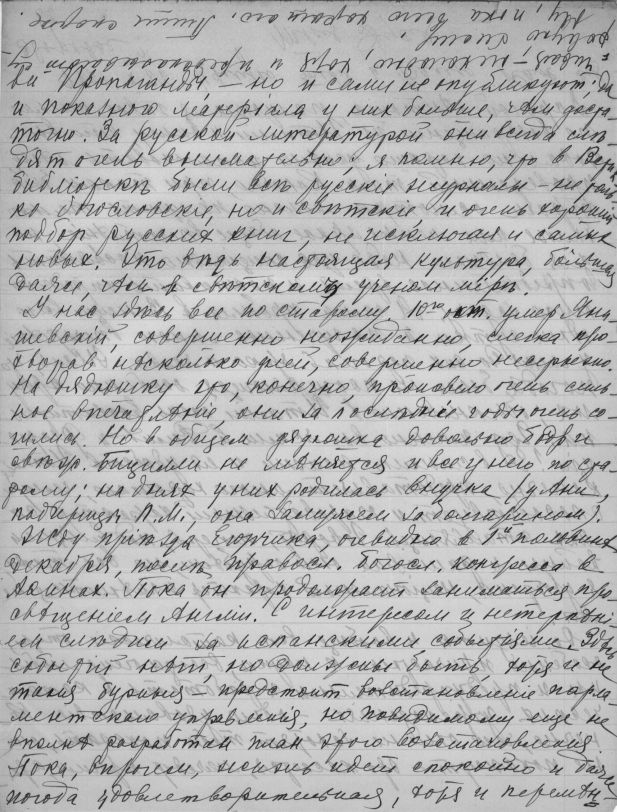 ви Пропаганды — но и сами не опубликуют: да
и показного матерьяла у них больше, чем доста-
точно. За русской литературой они всегда слѣ-
дят очень внимательно; я помню, что в
библіотекѣ были всѣ русскіе журналы — не толь-
ко богословскіе, но и свѣтскіе и очень хорошій
подбор русских книг, не исключая и самых
новых. Это вѣдь настоящая культура, большая
даже, чем в свѣтском ученом мірѣ.
У нас здѣсь все по старому. 10го окт. умер Яна-
шевскій совершенно неожиданно, слегка про-
хворав нѣсколько дней, совершенно несерьезно.
На дядюшку это, конечно, произвело очень силь-
ное впечатлѣніе, они за послѣдніе годы очень со-
шлись. Но в общем дядюшка довольно бодр и
свѣж. Бицилли не мѣняется и все у него по ста-
рому; на днях у них родилась внучка (у Ани,
падчерицы П.М., она замужем за болгарином).
Жду пріѣзда очевидно в 1й половинѣ
Декабря, послѣ правосл. богосл. конгресса в
Афинах. Пока он продолжает заниматься про-
свѣщеніем Англіи. С интересом и нетерпѣні-
ем слѣдим за испанскими событіями. Здѣсь
событій нѣт, но должны быть, хотя и не
такія бурныя — предстоит возстановленіе парла-
ментского управленія, но повидимому еще не
вполнѣ разработан план этого возстановленія
Пока, впрочем, жизнь идет спокойно и даже
погода удовлетворительная, хотя и перемѣн-
чивая, — неплохо, хотя и
Ну, пока всего хорошаго. Пиши скорѣе.